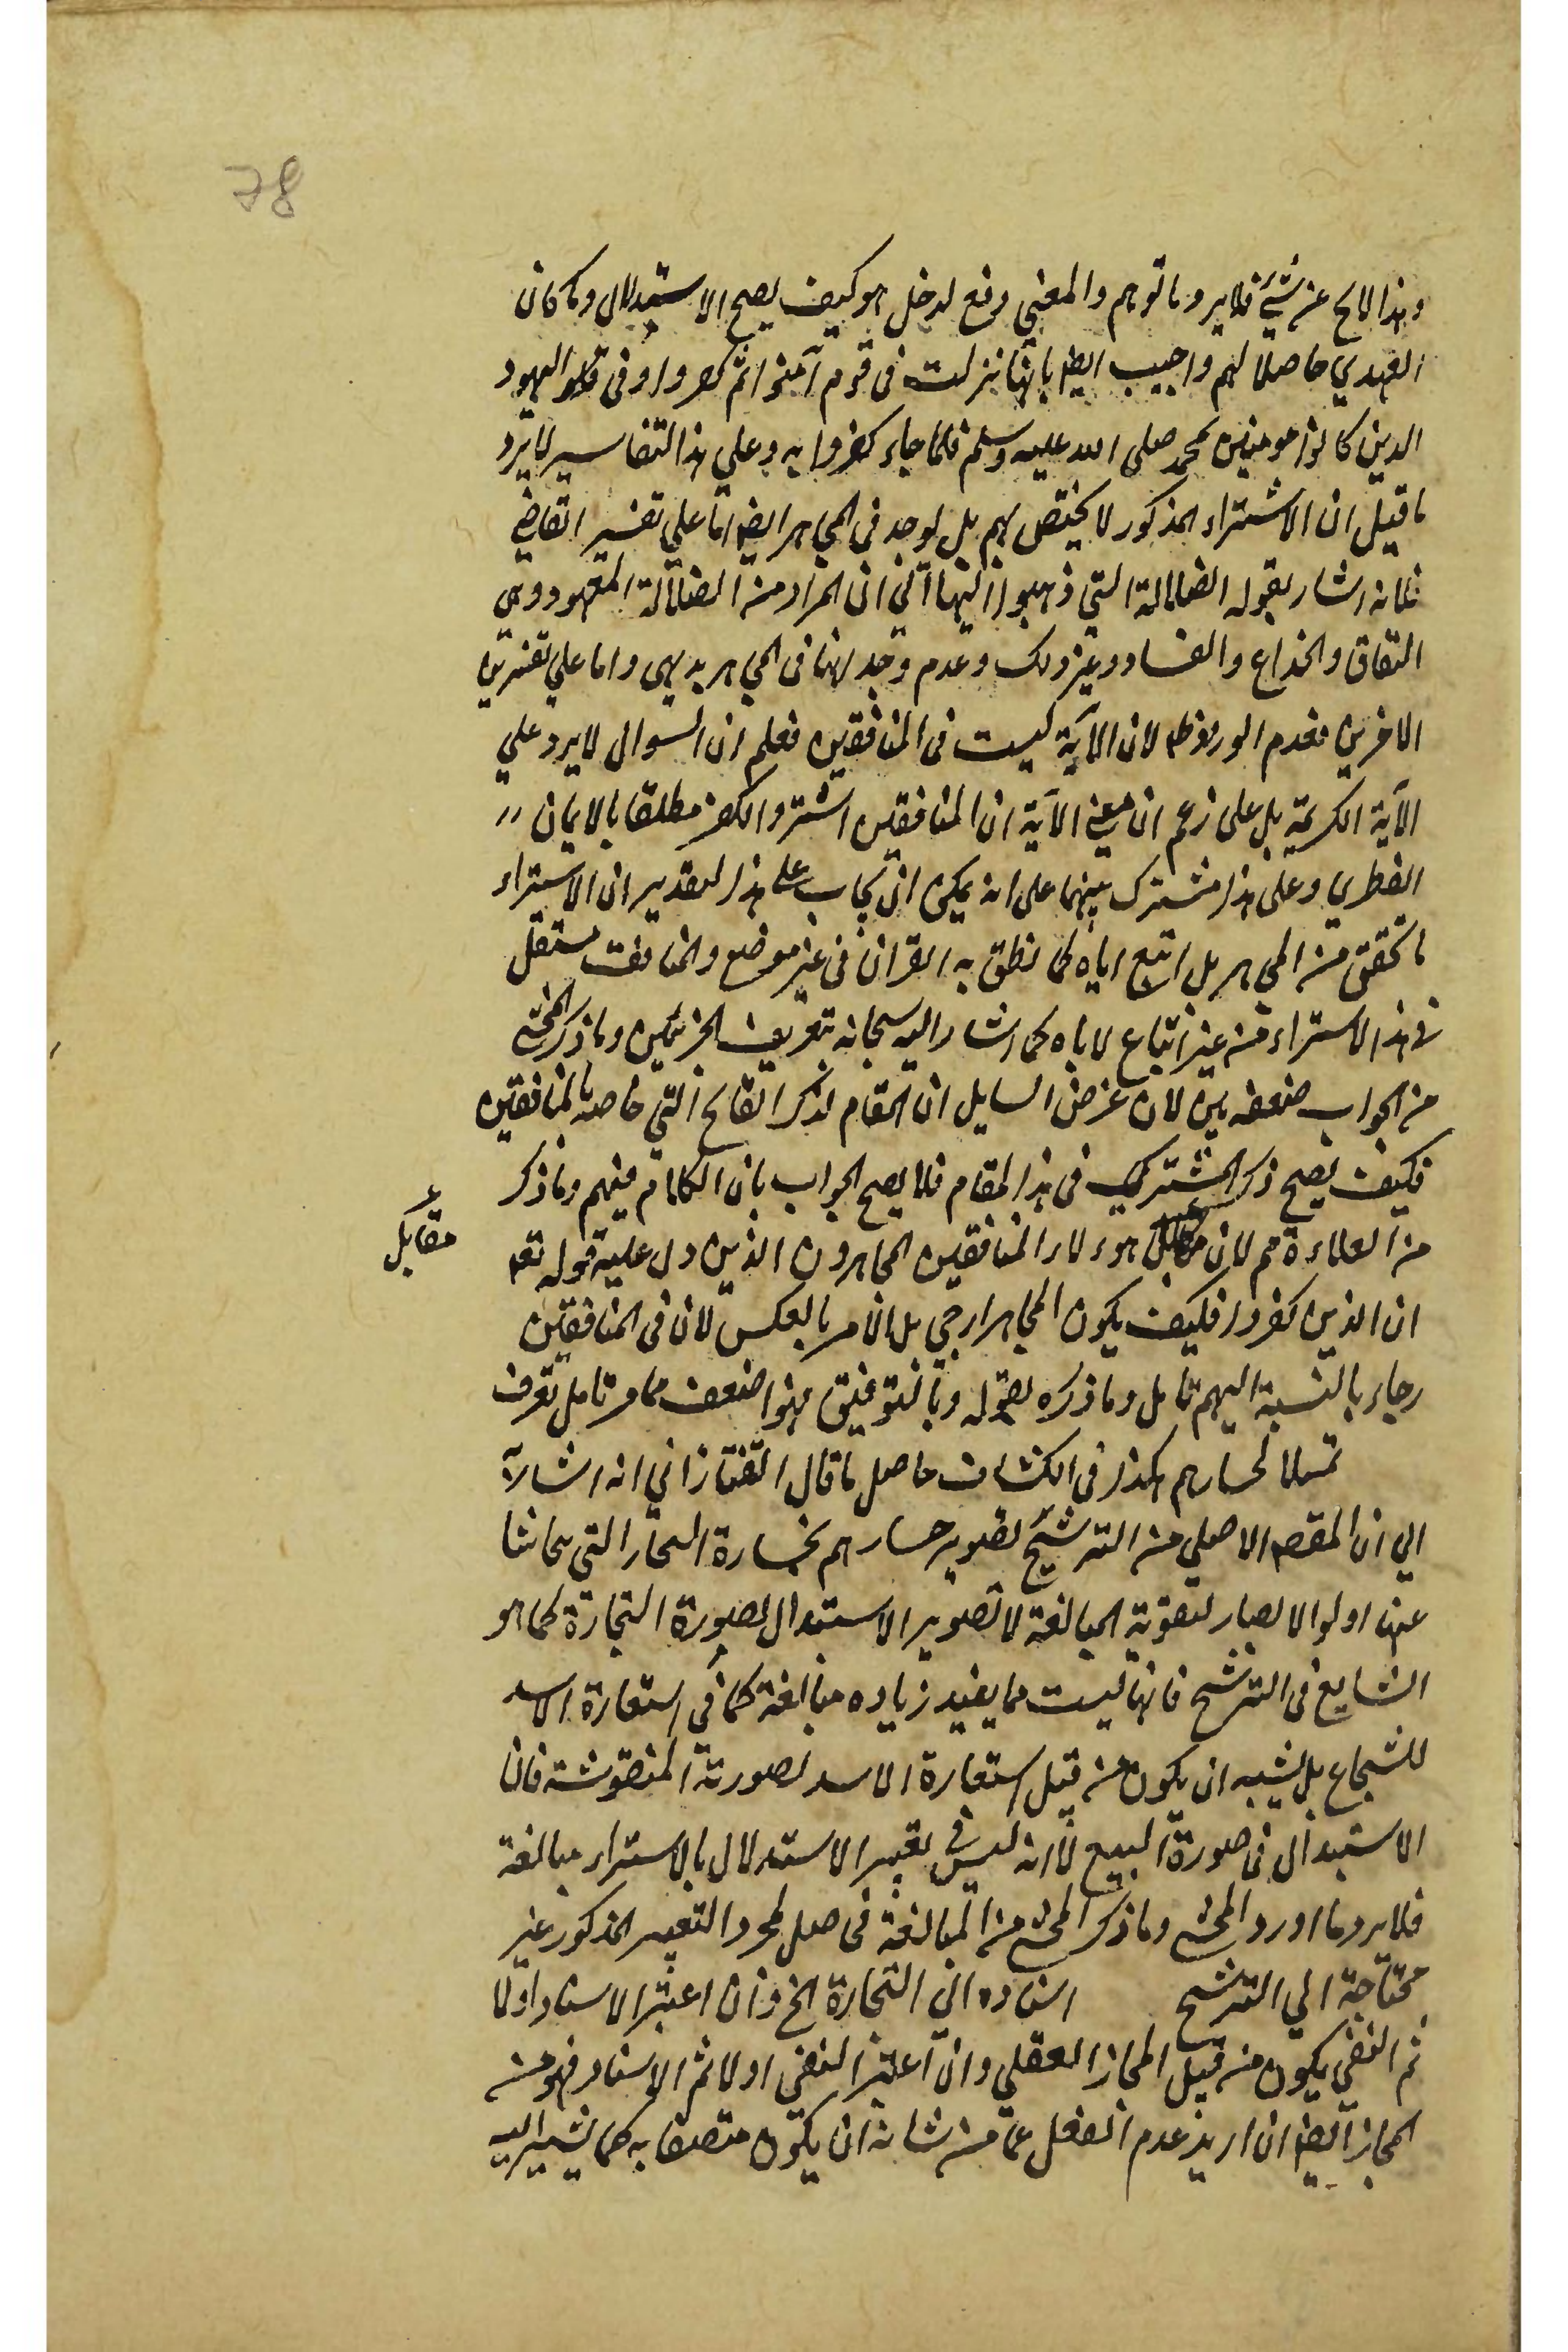 78
وهذا لايح عن شيء فلا يرد ما توهم والمعنى دفع لدخل هو كيف يصح الاستبدال وما كان
الهدي حاصلا لهم واجيب ايضا بانها نزلت فى قوم آمنوا ثم كفروا او فى اليهود
الذين كانوا مومنين بمحمد صلى الله عليه وسلم فلما جاء كفروا به وعلي هذا التفاسير لا يرد
ما قيل ان الاشتراء المذكور لا يختص بهم بل يوجد فى المجاهر ايضا اما علي تفسير القاضي
فلانه اشار بقوله الضلالة التي ذهبوا اليها الي ان المراد من الضلالة المعهود وهى
النفاق والخداع والفساد وغير ذلك وعدم وجدانها فى المجاهر بديهى واما علي تفسيرين
الاخرين فعدم الورود ظ لان الاية ليست فى المنافقين فعلم ان السوال لا يرد علي
الآية الكريمة بل على زعم ان معنى الآية ان المنافقين اشتروا الكفر مطلقا بالايمان
الفطري وعلى هذا مشترك بينهما على انه يمكن ان يجاب على هذا التقدير ان الاشتراء
ما تحقق من المجاهر بل اتبع اباه كما نطق به القران فى غير موضع والمنافق مستقل
فى هذا الاشتراء من غير اتباع لاباه كما اشار اليه سبحانه بتعريف الجزئين وما ذكر المحشى
من الجواب ضعفه بين لان غرض السايل ان المقام لذكر القبايح التي خاصه بالمنافقين
فكيف يصح ذكر المشترك فى هذا المقام فلا يصح الجواب بان الكلام فيهم وما ذكر
من العلاوة مم لان مقابل هوء لاء المنافقين المجاهرون الذين دل عليه قوله تعه
مقابل
ان الذين كفروا فكيف يكون المجاهر ارجى بل الامر بالعكس لان فى المنافقين
رجاء بالنسبة اليهم تامل وما ذكره بقوله وبالتوفيق فهو اضعف مما مر تامل تعرف
تمثيلا لخسارهم هكذا فى الكشاف حاصل ما قال التفتازاني انه اشارة
الي ان المقصد الاصلي من الترشيح تصوير خسارهم بخسارة التجار التي يتحاشا
عنها اولوا الابصار لتقوية المبالغة لا تصوير الاستبدال بصورة التجارة كما هو
الشايع فى الترشيح فانها ليست مما يفيد زياده مبالغة كما فى استعارة الاسد
للشجاع بل يشبه ان يكون من قبيل استعارة الاسد لصورته المنقوشة فان
الاستبدال فى صورة البيع لا انه ليس فى تعبير الاستبدال بالاشتراء مبالغة
فلا يرد ما اورد المحشى وما ذكر المحشى من المبالغة فى حصل بمجرد التعبير المذكور غير
محتاجة الي الترشيح اسناده الى التجارة الخ وان اعتبر الاسناد اولا
ثم النفي يكون من قبيل المجاز العقلي وان اعتبر النفي اولا ثم الاسناد فهو من
المجاز ايضا ان اريد عدم الفعل عما من شانه ان يكون متصفا به كما يشير اليه